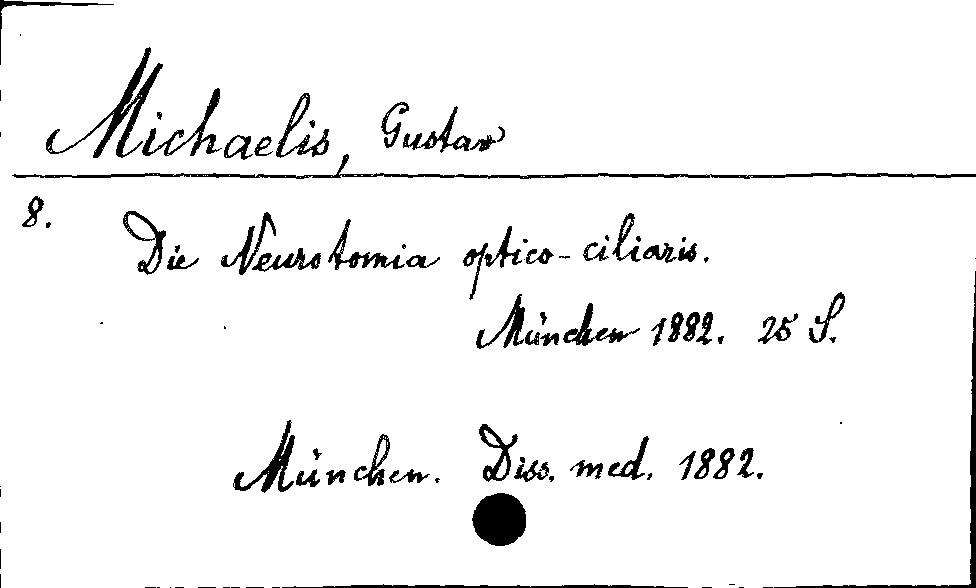 Michaelis, Gustav
8.
Die Neurotomia optico-ciliaris.
München 1882. 25 S.
München. Diss. med. 1882.